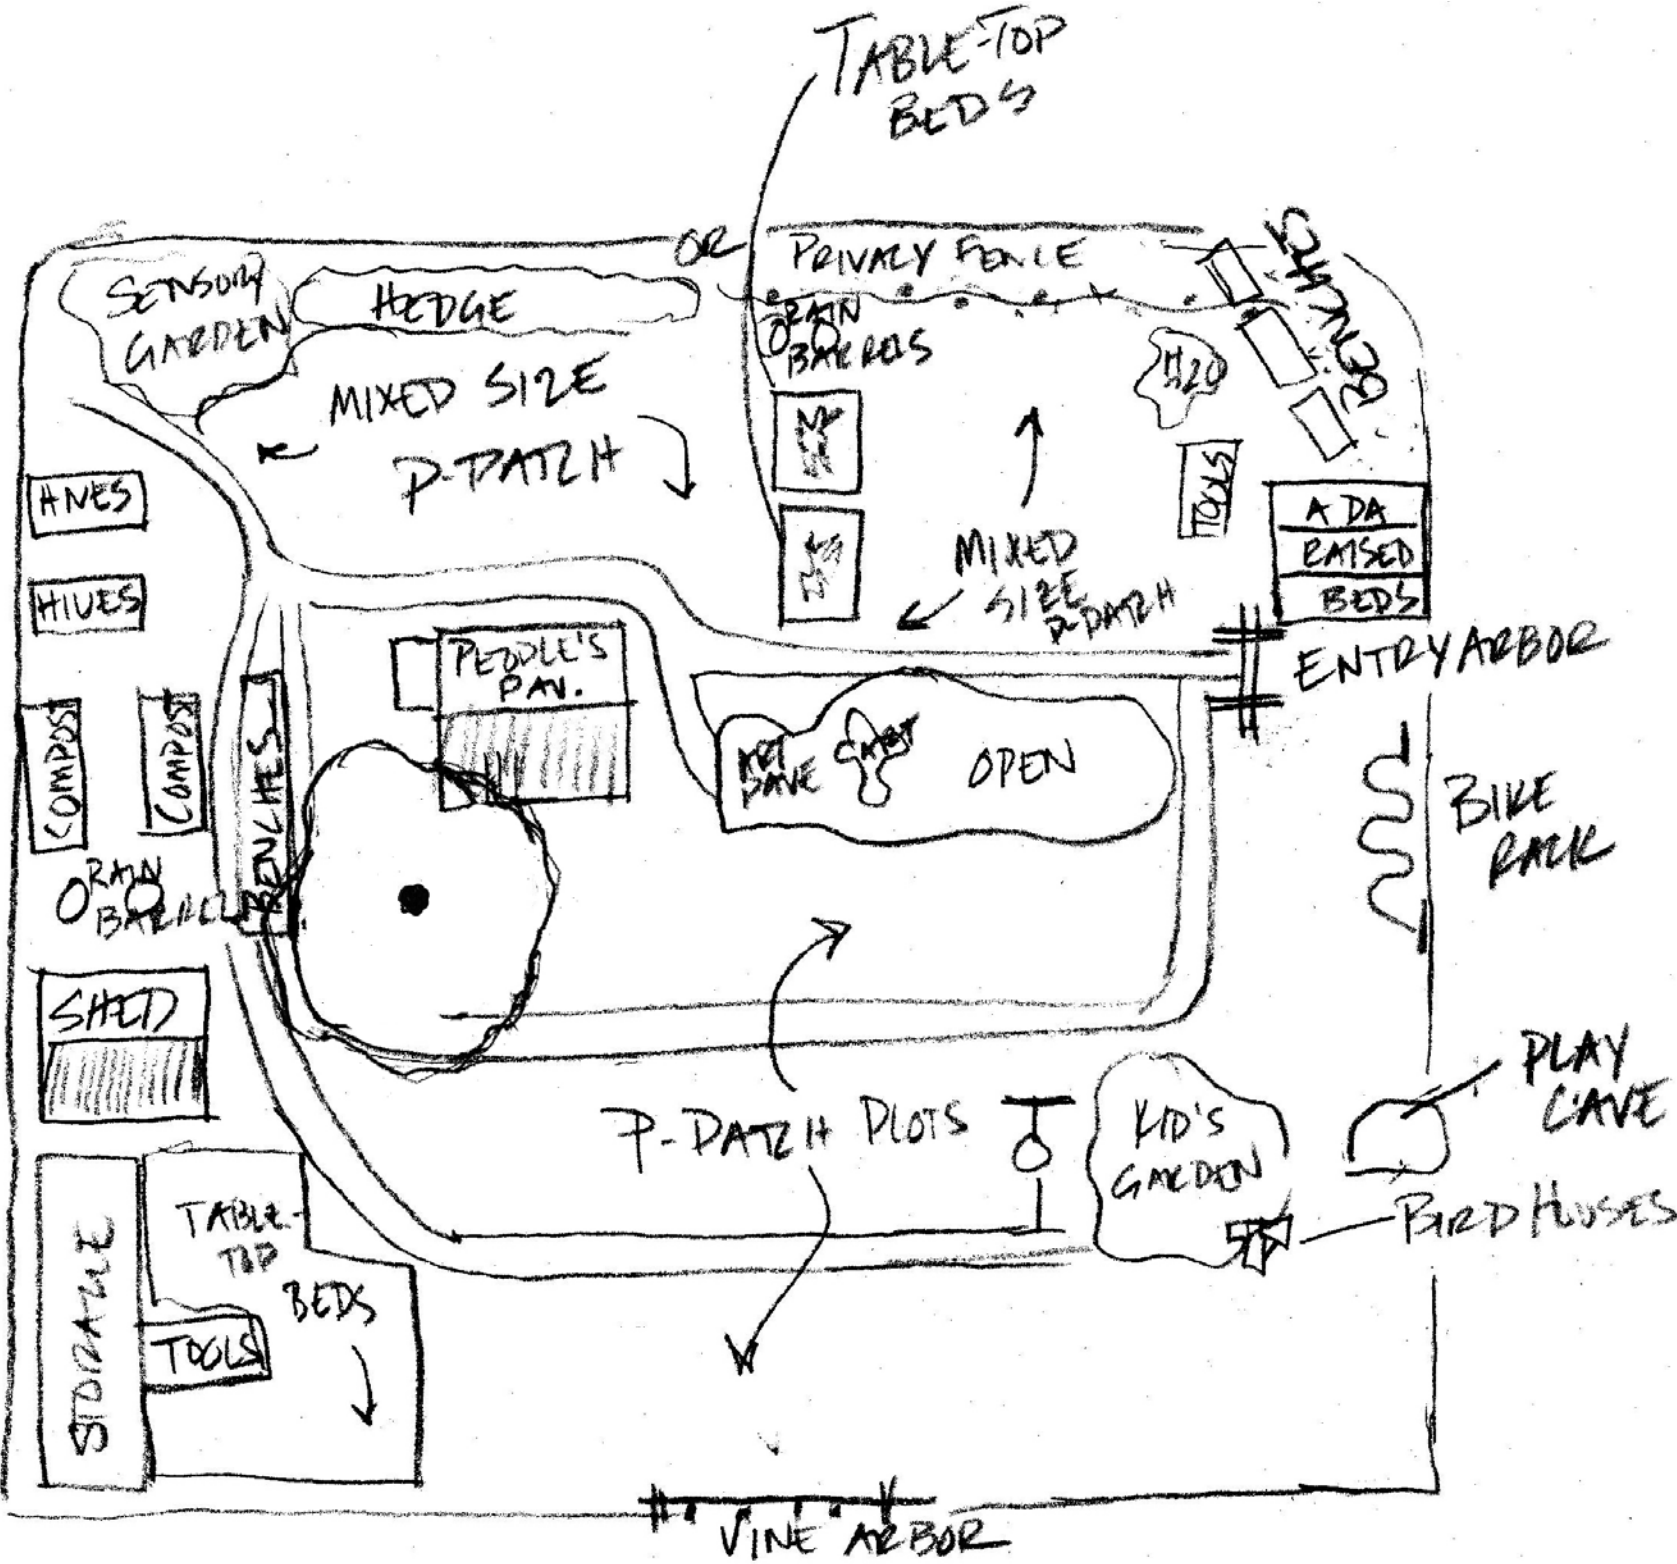 TABLE-TOP
BEDS
OR
PRIVACY FENCE
BENCHES
SENSORY
GARDEN
HEDGE
RAIN
BARRELS
H2O
MIXED SIZE
P-PATCH
TOOLS
HIVES
HIVES
ADA
RAISED
BEDS
MIXED
SIZE
P-PATCH
ENTRY ARBOR
PEOPLE'S
PAV.
COMPOST
COMPOST
BENCHES
ART
PAVE
OPEN
BIKE
RACK
RAIN
BARREL
SHED
PLAY
CAVE
P-PATCH PLOTS
KID'S
GARDEN
BIRD HOUSES
STORAGE
TABLE-
TOP
BEDS
TOOLS
VINE ARBOR